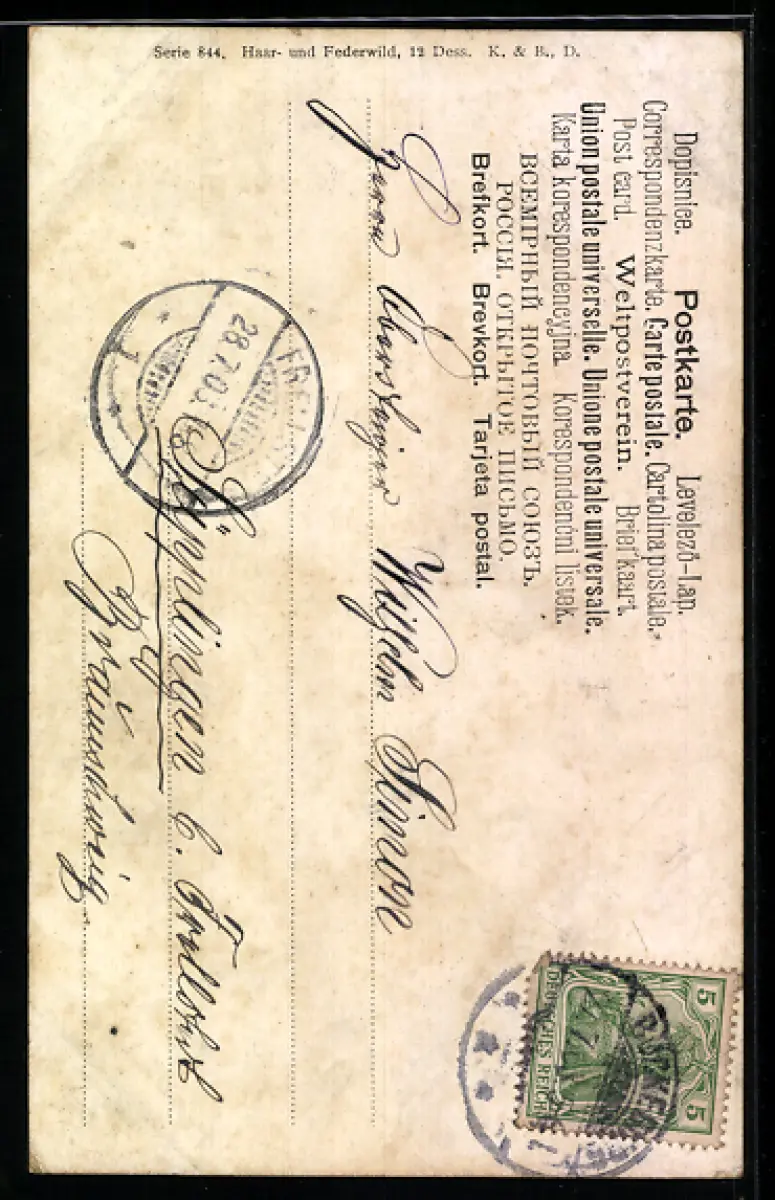 Serie 844. Haar- und Federwild, 12 Dess. K. & B., D.
Dopisnice. Postkarte. Levelező-Lap.
Correspondenzkarte. Carte postale. Cartolina postale.
Post card. Weltpostverein. Briefkaart.
Union postale universelle. Unione postale universale.
Karta korespondencyjna. Korespondenčni listek.
ВСЕМІРНЫЙ ПОЧТОВЫЙ СОЮЗЪ.
РОССІЯ. ОТКРЫТОЕ ПИСЬМО.
Brefkort. Brevkort. Tarjeta postal.
Herrn
Wilhelm Simon
Süpplingen b.
Bz Braunschweig
28.7.03
1
5 5
DEUTSCHES REICH